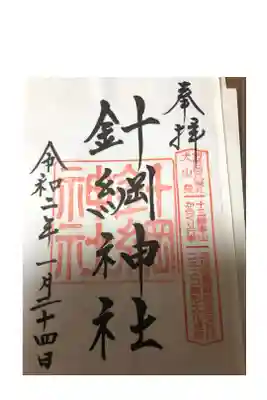 奉拝
針綱神社
針綱
神社
令和二年一月二十四日